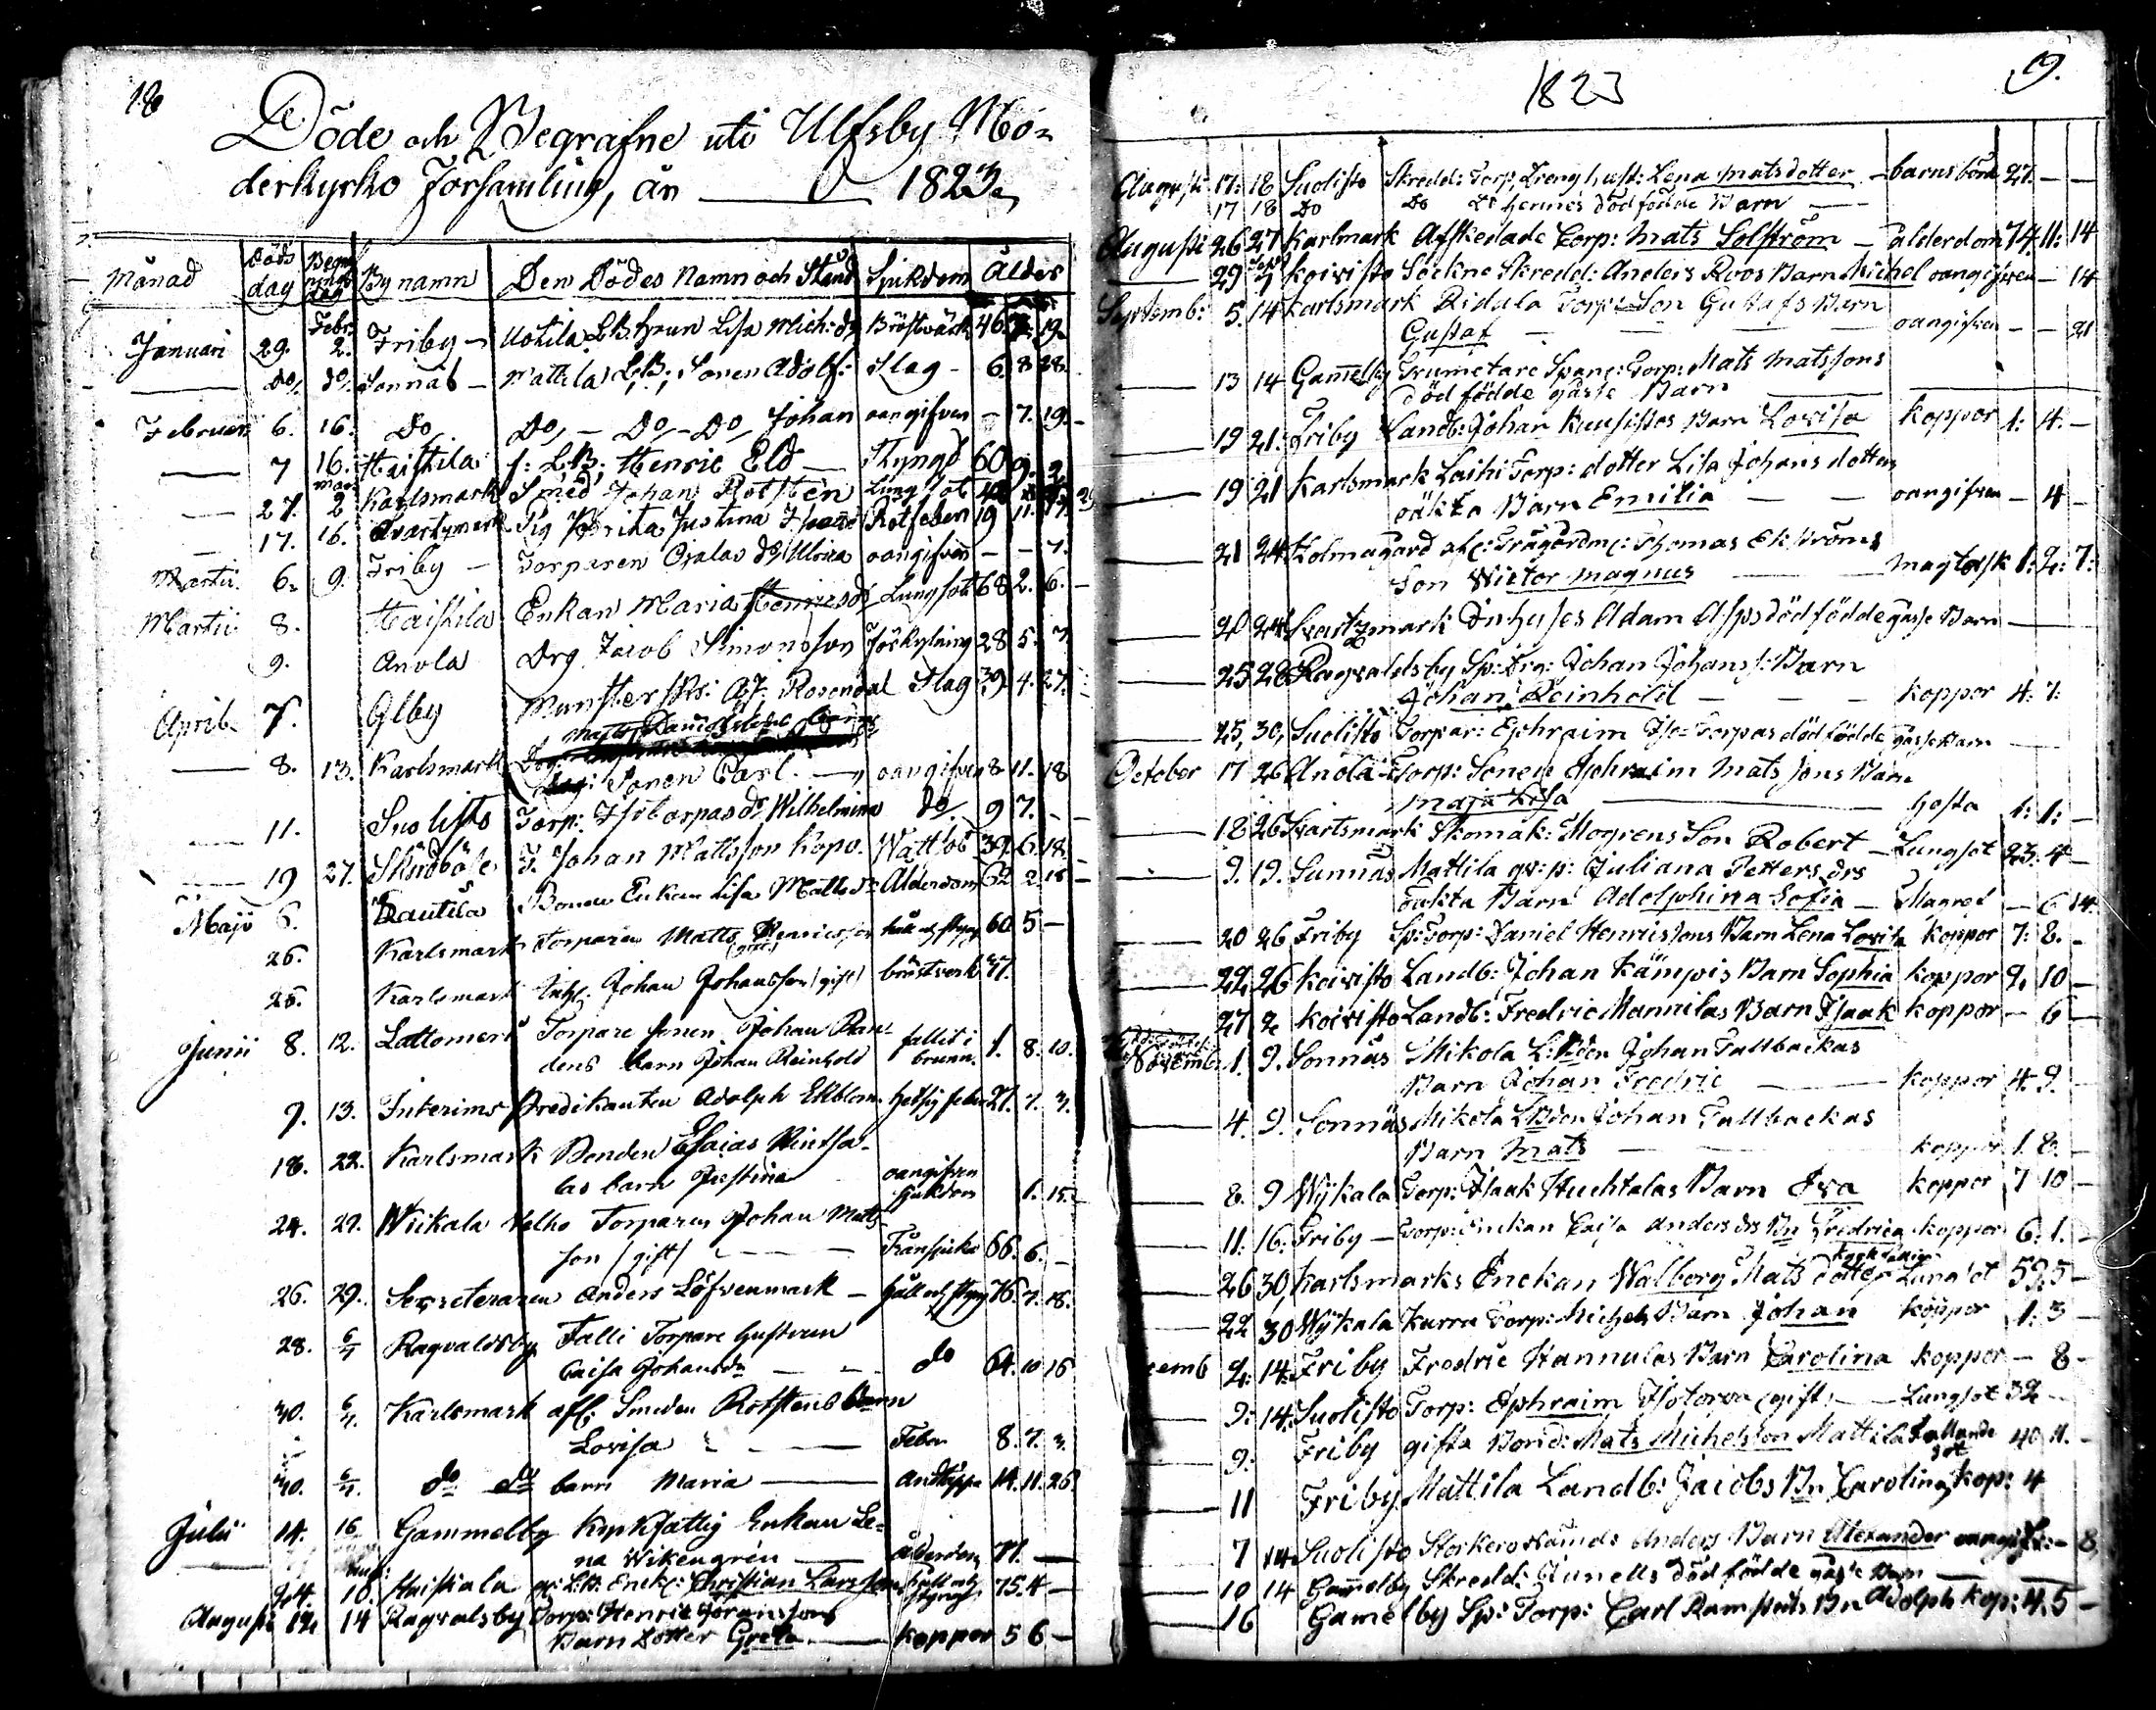 18
Döde och Begrafne uti Ulfsby Mo-
derkyrko Församling, år 1823.
Månad Döds dag Begrafnings dag By namn Den Dödes Namn och Stånd Sjukdom Ålder
Januari 29. Febr. 2. Friby - Uotila LB. hrun Lisa Mich: dr Bröstvärk 46. 7. 19.
do do Sonnäs - Mattila LB; Sonen Adolf: Slag - 6. 8 28.
Februari 6. 16. Do Do - Do - Do Johan oangifven - 7. 19. -
7 16. Haistila f: LB; Henric Eld - Styngd 60 9. 2
27. mars 2 Karlsmark Smed Johan Rotsten Lungsot
17. 16. Svartsmark Pig Brita Justina Rötfeber 19 11.
Martii 6. 9. Friby - Torparen Ojalas dr Ulrica oangifven - - 7.
Martii 8. Haistila Enkan Maria Henricsdr Lungsot 68 2. 6. -
9. Anola Drg Jacob Simonsson Förkylning 28 5. 7.
April 7. Gelby Munster Skr: Rosendal Slag 39. 4. 27.
8. 13. Karlsmark Sonen Carl. - oangifven 8. 11. 18
11. Suolisto Torp: Isotorpas dr Wilhelmina do 9 7. -
19 27. Johan Mattsson Kopo. Wattsot 39. 6. 18.
Maji 6. Rautila Bonen Enkan Lisa Mattsdr Ålderdom 62 2. 18 -
26. Karlsmark Torparen Matts Henricsson (gift) håll och styng 60 5 -
25. Karlsmark Inhs: Johan Johansson (gift) bröstverk 47.
Junii 8. 12. Lattomeri Torpare sonen Johan Ran-
dens barn Johan Reinhold fallit i brunn. 1. 8. 10.
9. 13. Interims Predikanten Adolph Ekblom hetsig feber 27. 7. 3.
18. 22. Karlsmark Bonden Esaias Rintsa-
las barn Justina oangifven sjukdom 1. 15.
24. 29. Wiikala Velho Torparen Johan Matts-
son (gift) - - - Transjuka 66. 6. -
26. 29. Secreteraren Anders Löfvenmark - håll och styng 76. 7. 18.
28. 6/7 Ragvaldsby Talli Torpare hustrun
Caisa Johansdr - - do 64. 10 16
30. 6/7. Karlsmark afl: Smeden Rotstens barn
Lovisa - - Feber 8. 7. 3.
30. 6/7. do do barn Maria - andtäppa 14. 11. 26
Julii 14. 16 Gammelby Kyrkfattig Enkan Le-
na Wikengrén - ålderdom 77. -
24. Aug: 10. Haistiala gl. LB. Enkl: Christian Larsson håll och styng 75. 4 -
Augusti 12. 14 Ragvalsby Torp: Henric Göranssons
Barn Dotter Greta - koppor 5 6 -
1823
9.
Augusti 17. 18 Suolisto Skredd: Torp, Dreng hust: Lena Matsdotter - barnsbörd 27. - -
17 18 Do Do Do hennes dödfödde Barn -
Augusti 26 27 Karlmark Afskedade Corp: Mats Solström - ålderdom 74. 11: 14
29 7 Koivisto Sockne Skredd: Anders Roos Barn Michel oangifven - 14
Septemb: 5. 14 Karlsmark Ridala Torp: Son Gustafs Barn
Gustaf - - - oangifven - - 21
13 14 Gamelby Trumetare Spane: Torp: Mats Matssons
Död födde gåsse Barn -
19 21. Friby Landb: Johan Kuusistos Barn Lovisa koppor 1: 4. -
19 21 Karlsmark Laihi Torp: dotter Lisa Johans dotters
oäkta Barn Emilia - - oangifven - 4 -
21 24 Holmagård afl: Trägårdm: Thomas Ekströms
Son Wictor Magnus - magtorsk 1: 2: 7:
20 24 Svartzmark Inhyses Adam Asps dödfödde gasse Barn -
25 28 Ragvaldsby Sp: Drg: Johan Johans: Barn
Johan Reinhold - - - koppor 4: 7:
25, 30, Suolisto Torpar: Ephraim Iso-Torpas dödfödde gasse Barn -
October 17 26 Anola Torp: Sonen Ephraim Mats sons Barn
Maja Lisa - hosta 1: 1: -
18 26 Svartsmark Skomak: Mogrens Son Robert - Lungsot 23. 4 -
9. 19. Sunnäs Mattila qv: p: Juliana Petters drs
oäkta Barn Adolphina Sofia - Magref - 6 14.
20 26 Friby Sp: Torp: Daniel Henricssons Barn Lena Lovisa koppor 7: 8. -
22, 26 Koivisto Landb: Johan Kämpis Barn Sophia koppor 2. 10 -
27 2 Koivisto Landb: Fredric Mannilas Barn Isaak koppor - 6 -
Novemb. 1. 9. Sonnäs Mikola L:Bden Johan Tallbackas
Barn Johan Fredric - koppor 4. 9.
4. 9. Sonnäs Mikola LBden Johan Tallbackas
Barn Mats - koppor 1. 8. -
8. 9 Wykala Torp: Isaak Huchtalas Barn Eva koppor 7 10 -
11: 16: Friby - Torp: Enckan Caisa Anders drs Bn Fredrica koppor 6: 1. -
26 30, Karlsmarks Enckan Walborg Mats dotter Lungsot 59. 5 -
22 30 Wykala Kurru Torp: Michels Barn Johan koppor 1: 3 -
cemb 2: 14: Friby Fredric Hannulas Barn Carolina koppor - 8 -
9: 14. Suolisto Torp: Ephraim Isotorpa (gift) - Lungsot 32 -
9: Friby gifta Bond: Mats Michelsson Mattila Fallande sot 40 11. -
11 Friby Mattila Landb: Jacobs Bn Carolina, kop: 4
7 14 Suolisto Anders Barn Alexander oangif: - 8,
10 14 Gamelby Skredd: Runells död födde gåsse Barn -
16 Gamelby Sp: Torp: Carl Ramstedts Bn Adolph kop: 4. 5 -